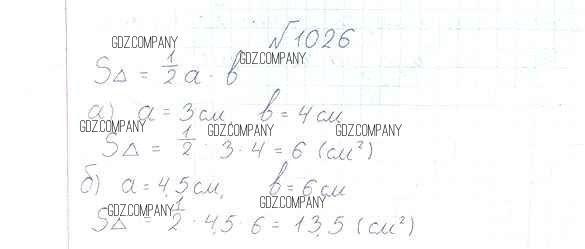 №1026
GDZ.COMPANY
GDZ.COMPANY
S△ = 1/2 a · b
а) a = 3 см b = 4 см
GDZ.COMPANY GDZ.COMPANY GDZ.COMPANY
S△ = 1/2 · 3 · 4 = 6 (см²)
б) a = 4,5 см, b = 6 см
GDZ.COMPANY GDZ.COMPANY
S△ = 1/2 · 4,5 · 6 = 13,5 (см²)